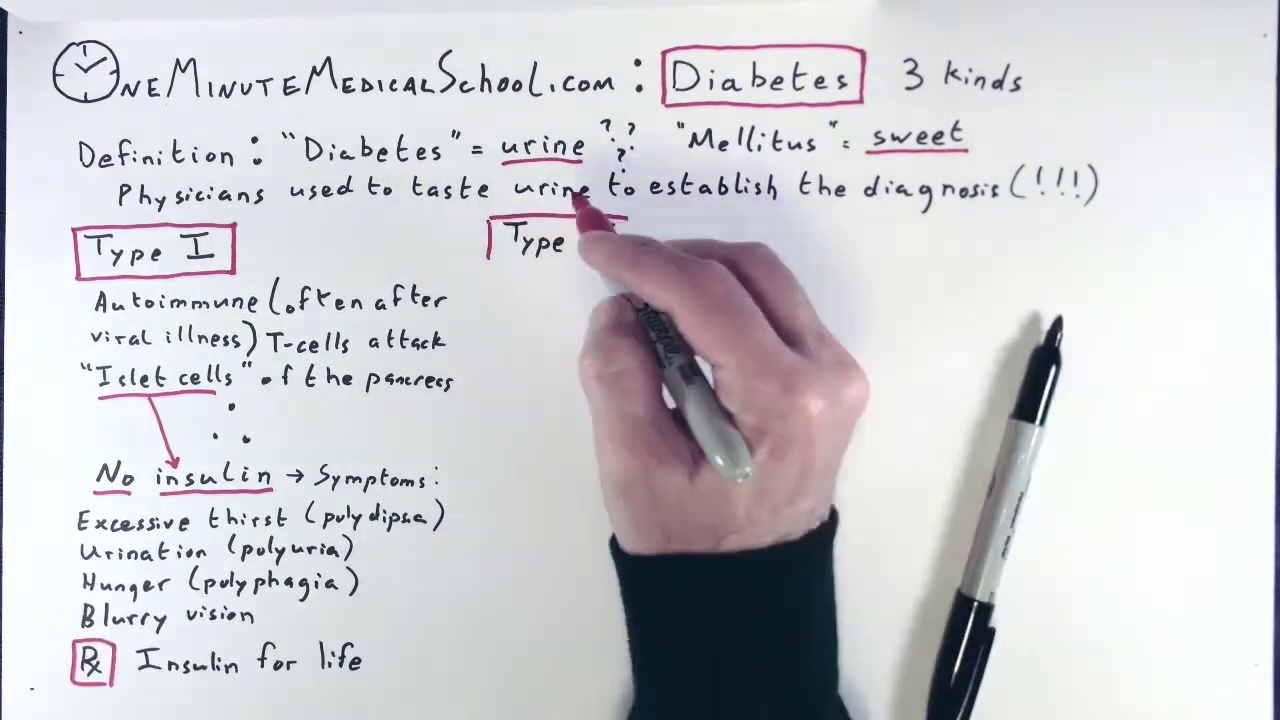 OneMinuteMedicalSchool.com : Diabetes 3 kinds
Definition : "Diabetes" = urine ??? "Mellitus" = sweet
Physicians used to taste urine to establish the diagnosis (!!!)
Type I
Autoimmune (often after
viral illness) T-cells attack
"Islet cells" of the pancreas
No insulin → Symptoms:
Excessive thirst (polydipsa)
Urination (polyuria)
Hunger (polyphagia)
Blurry vision
Rx Insulin for life
Type